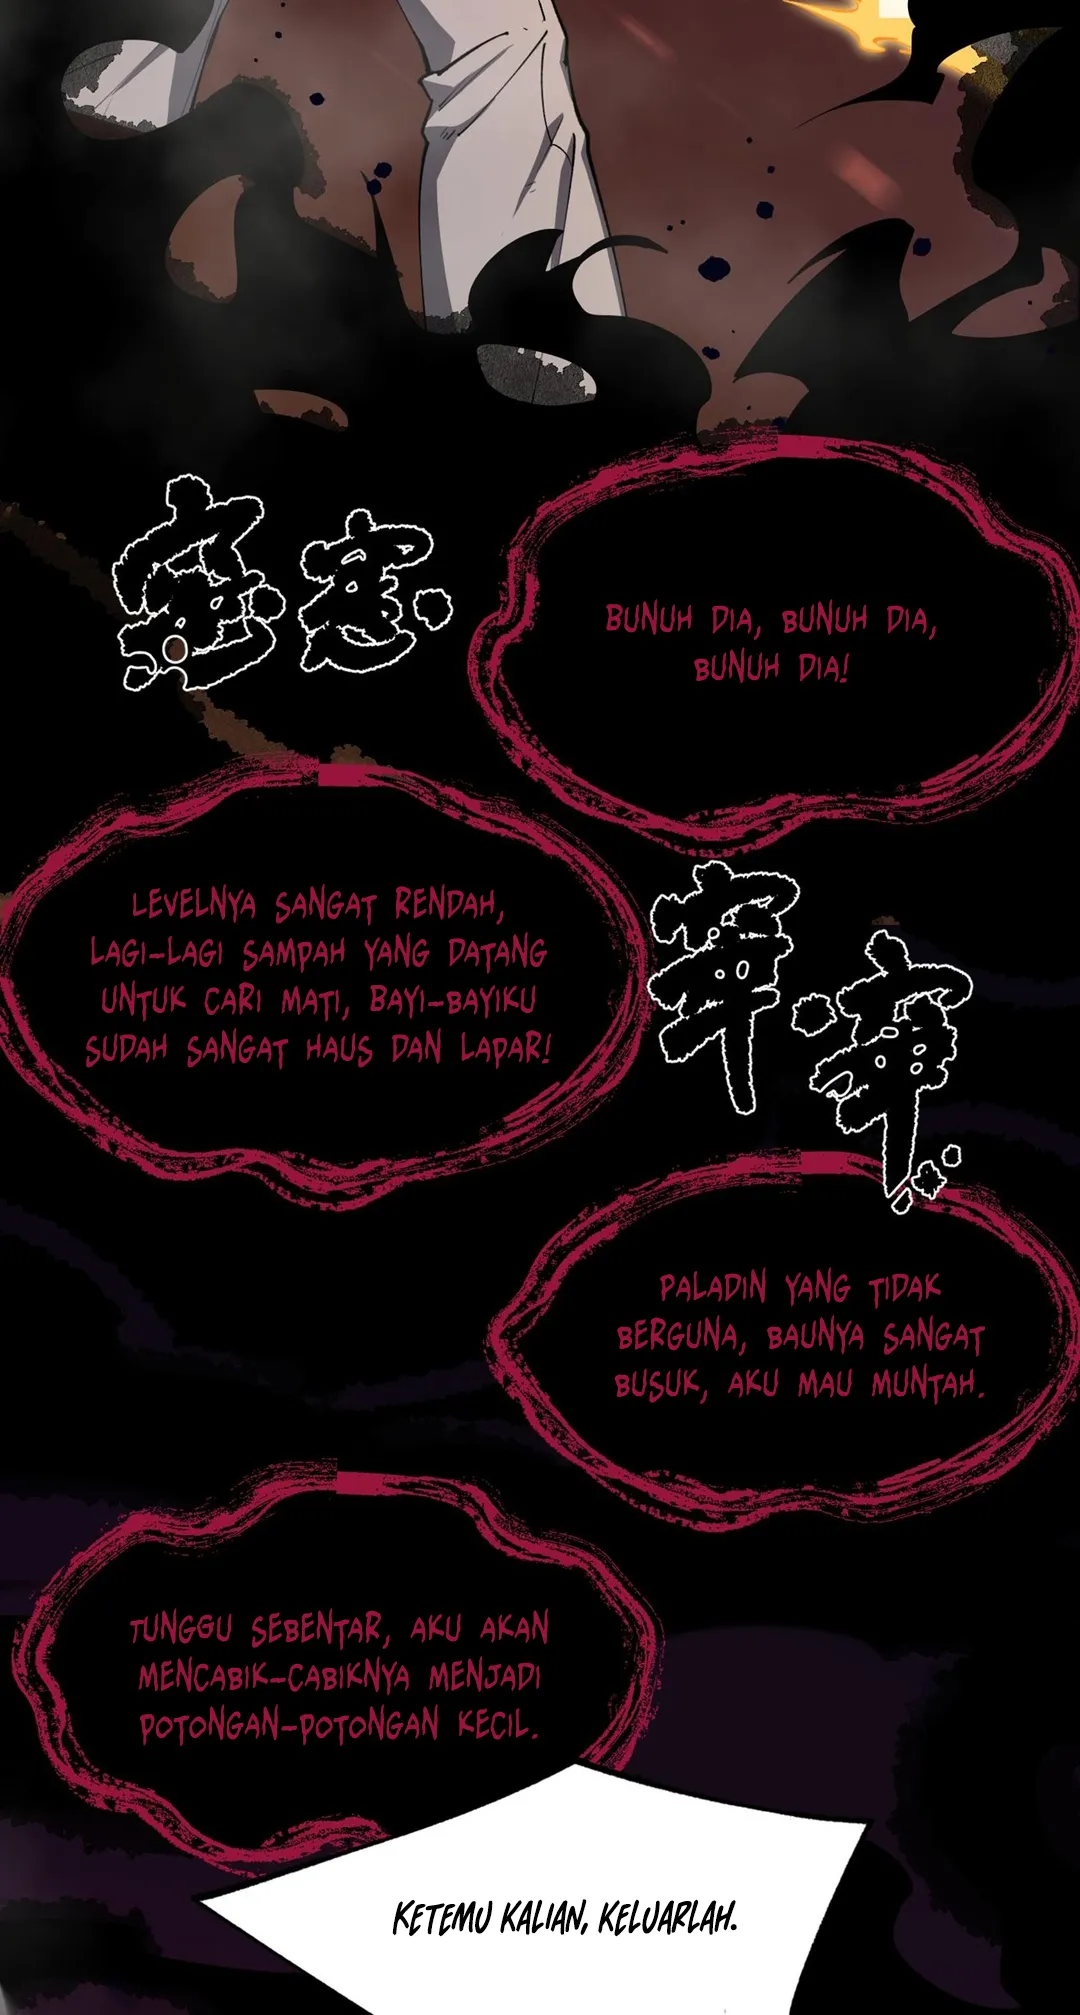 窸窸
BUNUH DIA, BUNUH DIA,
BUNUH DIA!
LEVELNYA SANGAT RENDAH,
LAGI-LAGI SAMPAH YANG DATANG
UNTUK CARI MATI, BAYI-BAYIKU
SUDAH SANGAT HAUS DAN LAPAR!
PALADIN YANG TIDAK
BERGUNA, BAUNYA SANGAT
BUSUK, AKU MAU MUNTAH.
TUNGGU SEBENTAR, AKU AKAN
MENCABIK-CABIKNYA MENJADI
POTONGAN-POTONGAN KECIL.
KETEMU KALIAN, KELUARLAH.